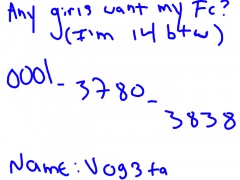 Any girls want my Fc?
(I'm 14 btw)
0001-3780-3838
Name: Vog3ta